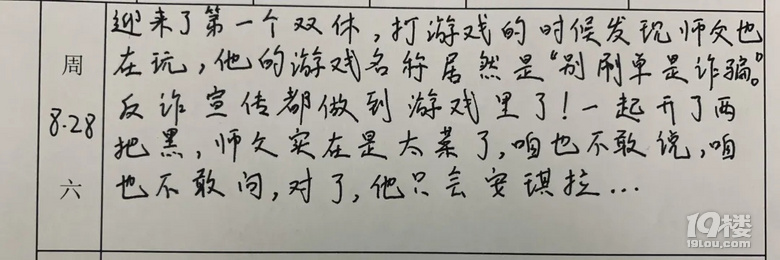 迎来了第一个双休，打游戏的时候发现师父也
在玩，他的游戏名称居然是“别刷单是诈骗。”
反诈宣传都做到游戏里了！一起开了两
把黑，师父实在是太菜了，咱也不敢说，咱
也不敢问，对了，他只会安琪拉...
周
8.28
六
19楼
19lou.com